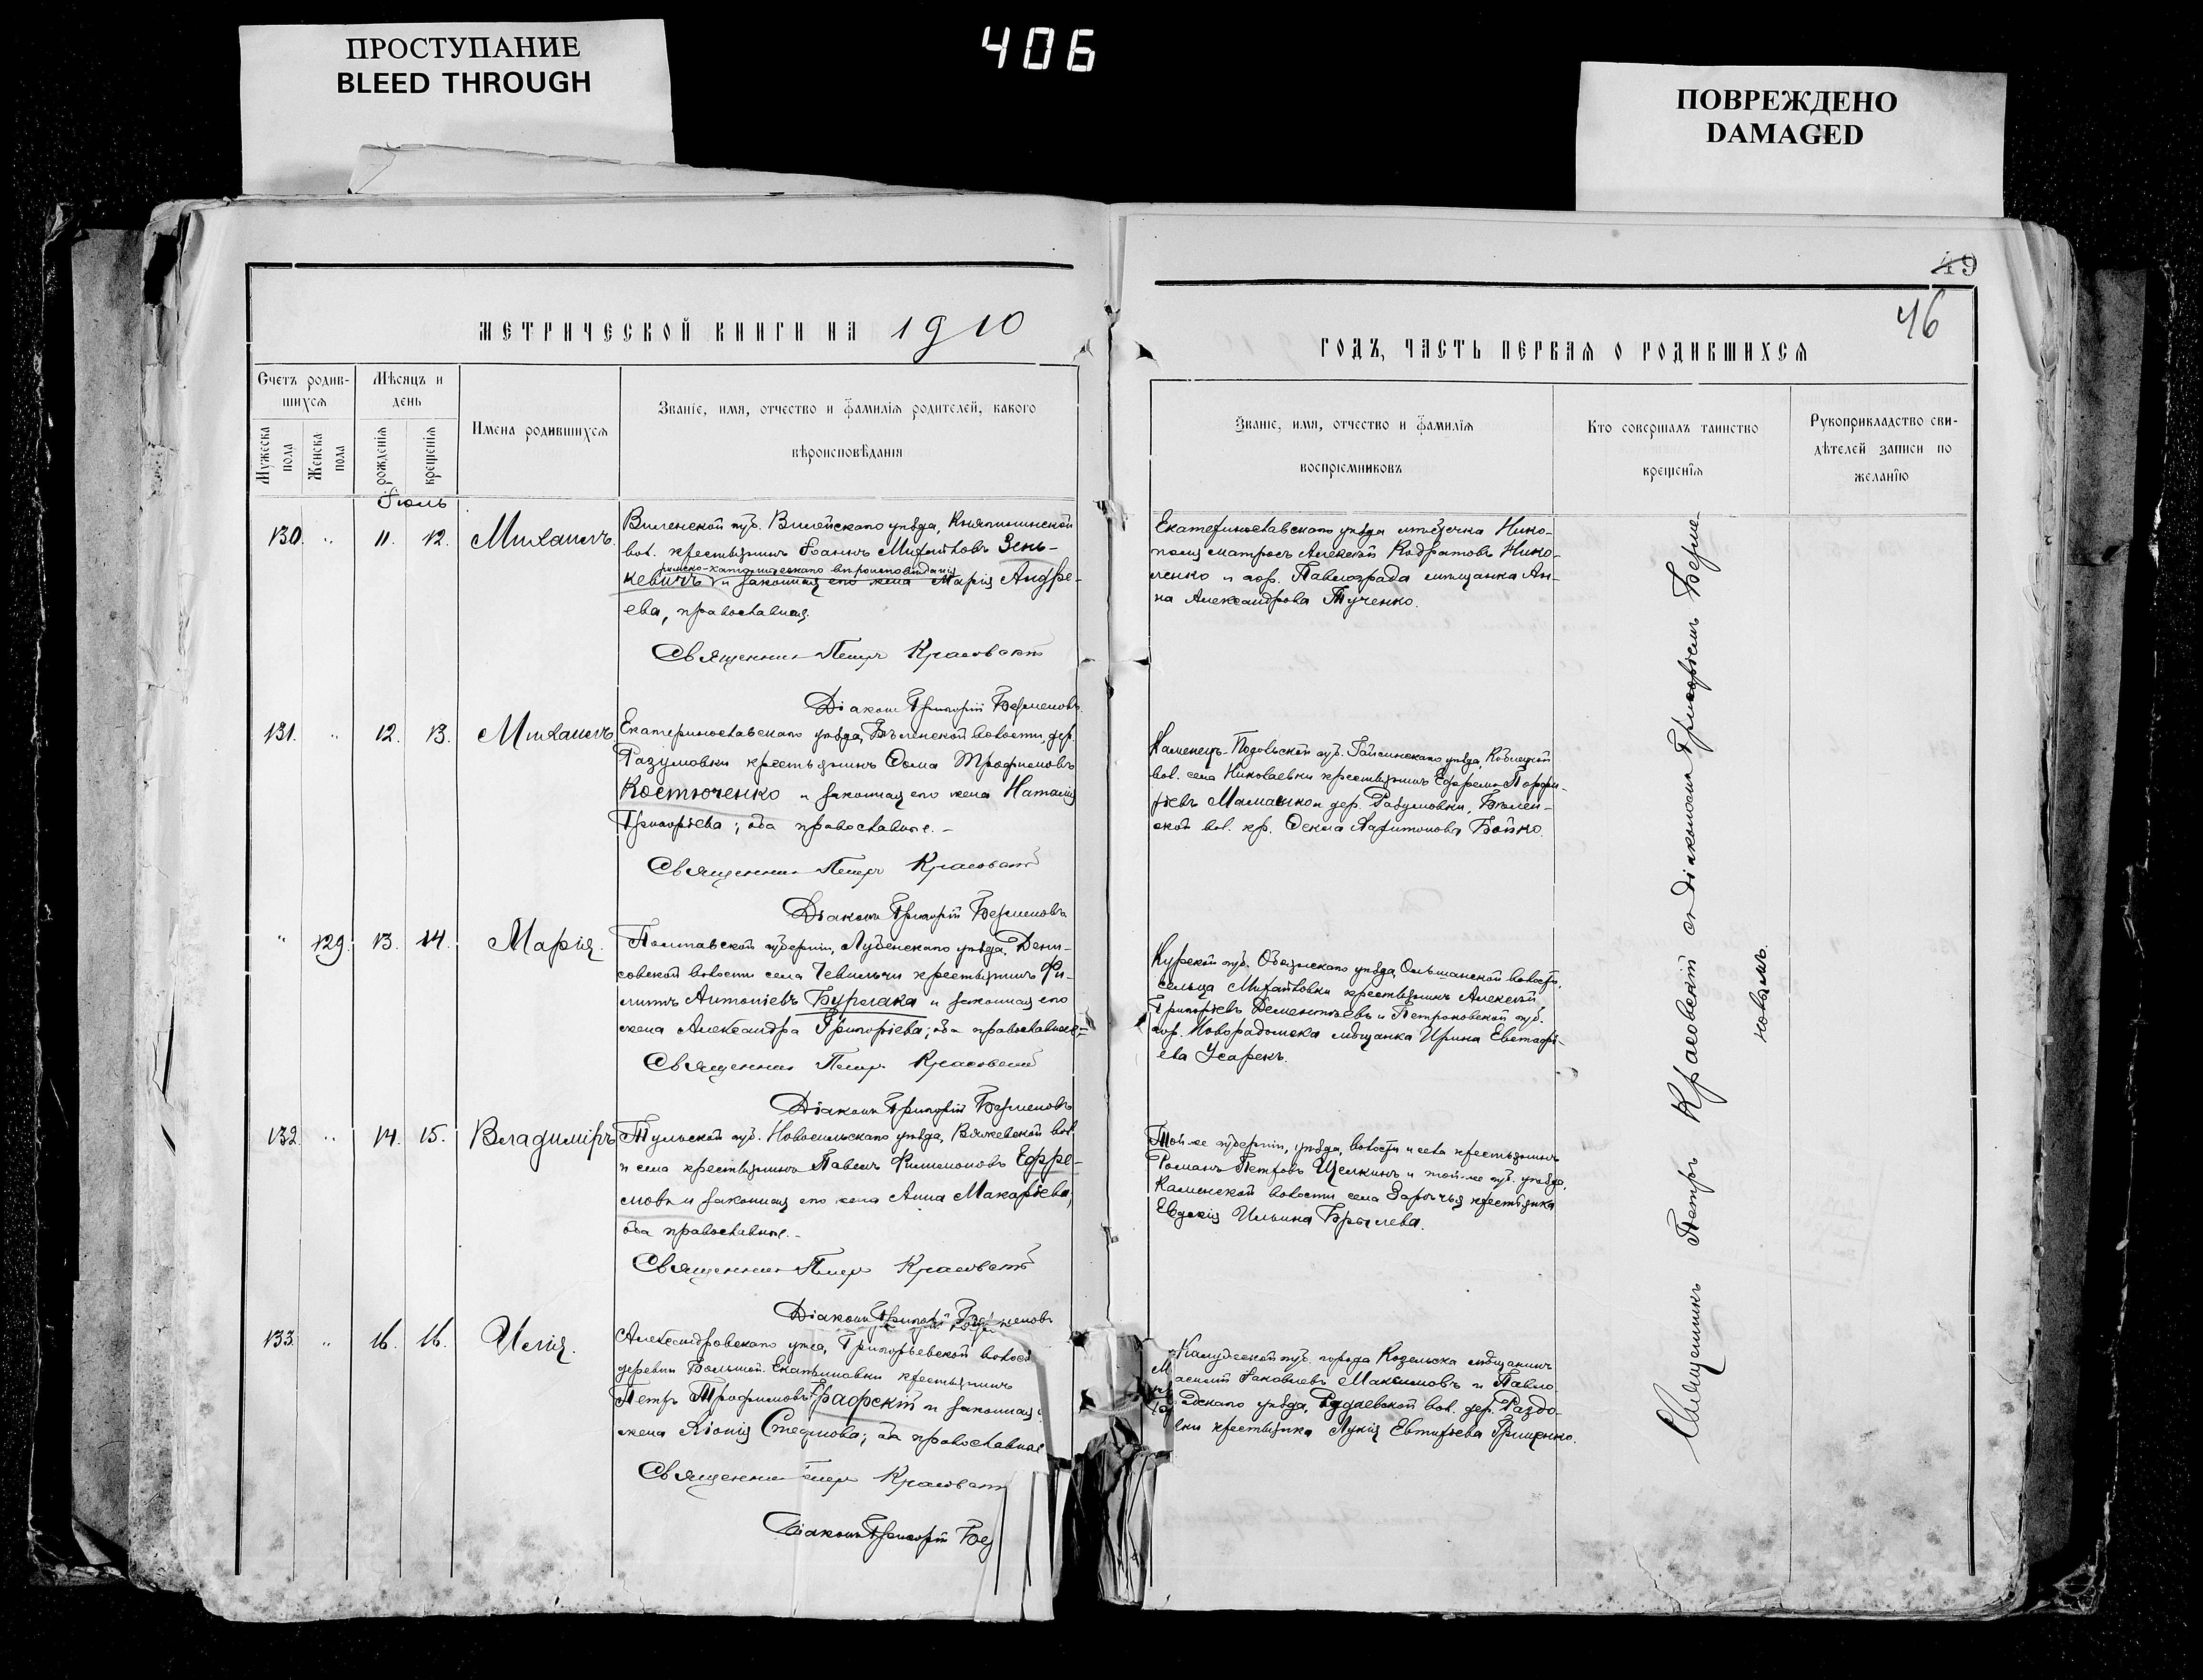 ПРОСТУПАНИЕ
BLEED THROUGH
406
ПОВРЕЖДЕНО
DAMAGED
49
46
МЕТРИЧЕСКОЙ КНИГИ НА 1910
ГОДЪ, ЧАСТЬ ПЕРВАЯ О РОДИВШИХСЯ
Счетъ родив-
шихся
Мужеска пола
Женска пола
Мѣсяцъ и
день
рожденія
крещенія
Имена родившихся
Званіе, имя, отчество и фамилія родителей, какого
вѣроисповѣданія
Званіе, имя, отчество и фамилія
воспріемниковъ
Кто совершалъ таинство
крещенія
Рукоприкладство сви-
дѣтелей записи по
желанію
Іюль
130. " 11. 12. Михаилъ.
Виленской губ. Вилейскаго уѣзда, Княгининской
вол. крестьянинъ Іоаннъ Михайловъ Зень-
римско-католическаго вѣроисповѣданія
кевичъ и законная его жена Марія Андре-
ева, православная.
Священникъ Петръ Красовскій
Діаконъ Григорій Берменовъ.
Екатеринославскаго уѣзда мѣстечка Нико-
поля матросъ Алексѣй Кодратовъ Нико-
ленко и гор. Павлограда мѣщанка Ан-
на Александрова Тученко.
131. " 12. 13. Михаилъ
Екатеринославскаго уѣзда, Бѣленской волости, дер.
Разумовки крестьянинъ Ѳома Трофимовъ
Костюченко и законная его жена Наталія
Григорьева; оба православные.-
Священникъ Петръ Красовскій
Діаконъ Григорій Берменовъ
Каменецъ-Подольской губ. Гайсинскаго уѣзда, Кобыецкой
вол. села Николаевки крестьянинъ Ефремъ Порфи-
рьевъ Мамашкои дер. Разумовки, Бѣлен-
ской вол. кр. Ѳекла Харитонова Бойко.
" 129. 13. 14. Марія.
Полтавской губерніи, Лубенскаго уѣзда, Дени-
совской волости села Чевильчи крестьянинъ Фи-
липпъ Антоніевъ Бурлака и законная его
жена Александра Григорьева; оба православные.-
Священникъ Петръ Красовскій
Діаконъ Григорій Берменовъ
Курской губ. Обоянскаго уѣзда, Ольшанской волости,
сельца Михайловки крестьянинъ Алексѣй
Григорьевъ Дементьевъ и Петроковской губ.
гор. Новорадомска мѣщанка Ирина Евстафі-
ева Усарекъ.
132. " 14. 15. Владиміръ
Тульской губ. Новосильскаго уѣзда, Вяжевской вол.
и села крестьянинъ Павелъ Филимоновъ Ефре-
мовъ и законная его жена Анна Макарьева,
оба православные.-
Священникъ Петръ Красовскій
Діаконъ Григорій Берменовъ
Той-же губерніи, уѣзда, волости и села крестьянинъ
Романъ Петровъ Щелкинъ и той-же губ. уѣзда,
Каменской волости села Зарѣчья крестьянка
Евдокія Ильина Брылева.
133. " 16. 16. Илія.
Александровскаго уѣзда, Григорьевской волос
деревни Большой Екатериновки крестьянинъ
Петръ Трофимовъ Графскій и законная
жена Хіонія Стефанова; оба православные
Священникъ Петръ Красовск
Діаконъ Григорій Бер
Калужской губ. города Козельска мѣщанинъ
Василій Яковлевъ Максимовъ и Павло
градскаго уѣзда, Рудаевской вол. дер. Раздо-
лки крестьянка Лукія Евтихіева Грищенко.
Священникъ Петръ Красовскій съ діакономъ Григоріемъ Берме-
новымъ.